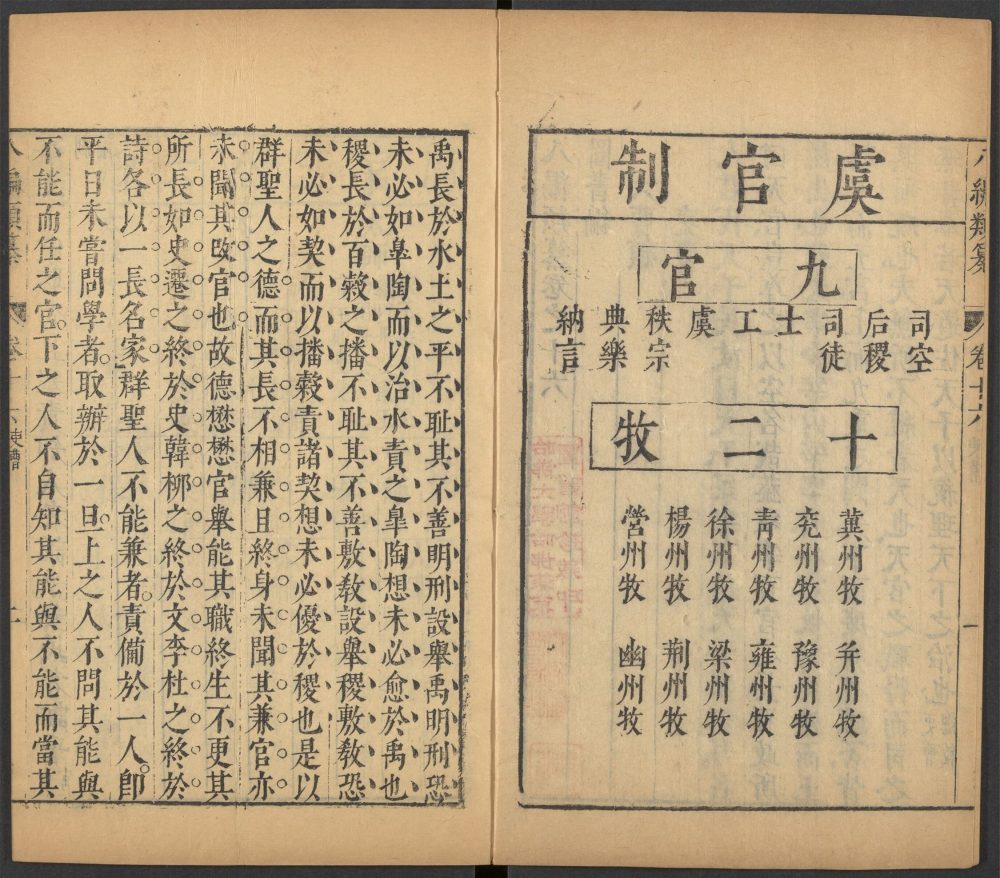 八編類纂 卷十六
虞官制
九官
司空
后稷
司徒
士
工
虞
秩宗
典樂
納言
十二牧
冀州牧 并州牧
兖州牧 豫州牧
靑州牧 雍州牧
徐州牧 梁州牧
楊州牧 荆州牧
營州牧 幽州牧
禹長於水土之平不耻其不善明刑設舉禹明刑恐
未必如皐陶而以治水責之皐陶想未必愈於禹也
稷長於百穀之播不耻其不善敷敎設舉稷敷敎恐
未必如契而以播穀責諸契想未必優於稷也是以
群聖人之德而其長不相兼且終身未聞其兼官亦
未聞其改官也故德懋懋官舉能其職終生不更其
所長如史遷之終於史韓柳之終於文李杜之終於
詩各以一長名家群聖人不能兼者責備於一人卽
平日未嘗問學者取辦於一旦上之人不問其能與
不能而任之官下之人不自知其能與不能而當其
八編類纂